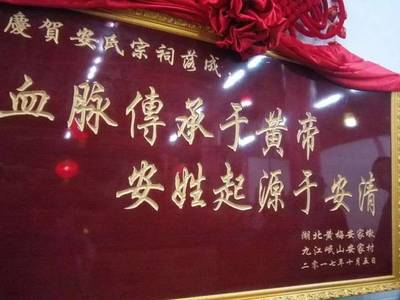 慶賀安氏宗祠落成
血脉傳承于黄帝
安姓起源于安清
湖北黄梅安家墩
九江岷山安家村
二零一七年十月五日